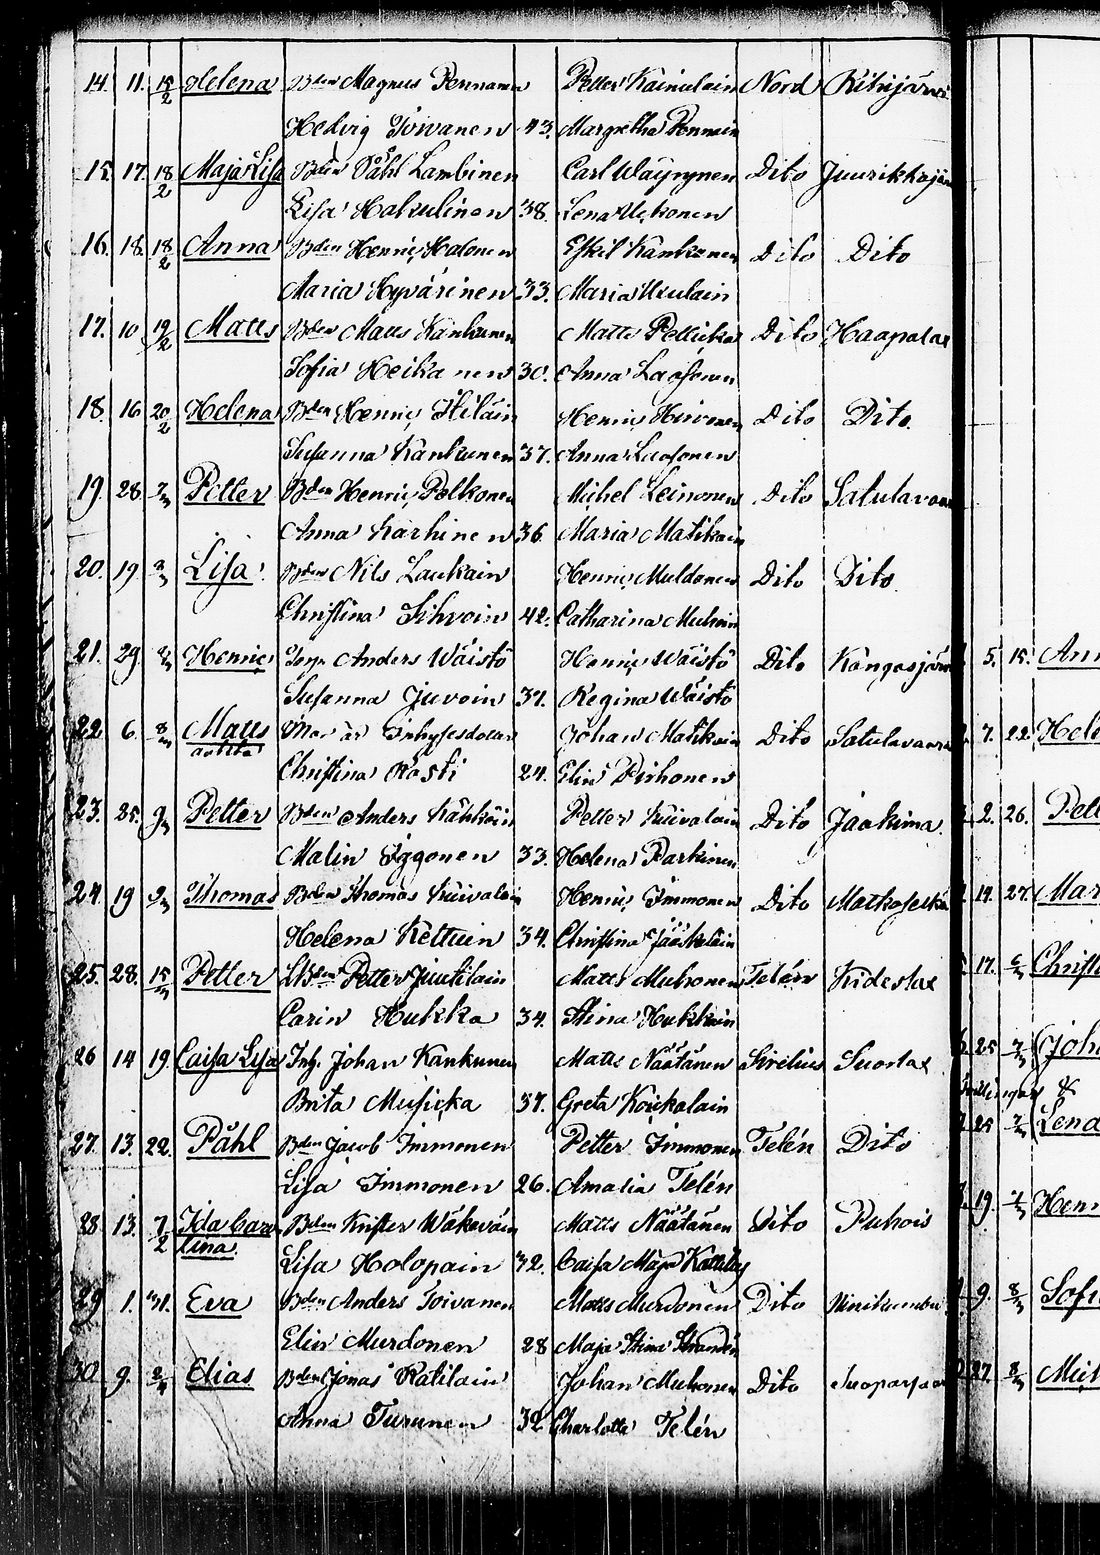 14. 11. 15/2 Helena Bden Magnus Pennanen Petter Kainulain Nord Kihijärvi
Hedvig Toivanen 43. Margretha Pennain
15. 17. 18/2 Maja Lisa Bden Påhl Lambinen Carl Wäyrynen Dito Juurikkajär
Lisa Hakulinen 38. Lena Uckonen
16. 18. 18/2 Anna Bden Henric Halonen Eskil Känkönen Dito Dito
Maria Hyvärinen 33. Maria
17. 10 19/2 Matts Bden Matts Kankunen Matts Pellicka Dito Haapalax
Sofia Heikanen 30. Anna Laasonen
18. 16 20/2 Helena Bden Henric Henric Hirvonen Dito Dito.
Susanna Kankunen 37. Anna Laasonen
19 28. 7/3 Petter Bden Henric Polkonen Michel Leinonen Dito Satulavaar
Anna Karhinen 36. Maria Matikain
20. 19 Lisa Bden Nils Laukain Henric Muldonen Dito Dito
Christina Sihvoin 42. Catharina Muhoin
21. 29. Henric Anders Wäistö Henric Wäistö Dito Kangasjärvi
Susanna Juvoin 37. Regina Wäistö
22 6. 8/3 Matts Mor är Inhysesdotter Johan Matikain Dito Satulavaara
Christina Rasti 24. Elin Pirhonen
23. 25. 9/3 Petter Bden Anders Kähköin Petter Kuivalain Dito Jaakima
Malin Iggonen 33. Helena Parkinen
24. 19 Thomas Bden Thomas Kuivalain Henric Immonen Dito Matkaselkä
Helena Kettuin 34. Christina Jääskeläin
25. 28. 15/3 Petter Petter Juutilain Matts Muhonen Telén Kideslax
Carin Hukka 34. Stina Hukkain
26 14 19. Caisa Lisa Inh. Johan Kankunen Matts Näätänen Sirelius Suorlax
Brita Musicka 37. Greta Koukalain
27. 13. 22. Påhl Bden Jacob Immonen Petter Immonen Telén Dito
Lisa Immonen 26. Amalia Telén
28 13. 7/2 Ida Caro Bden Krister Wäkeväin Matts Näätänen Dito Puhois
lina. Lisa Holopain 32. Caisa Maja
29 1. 31. Eva Bden Anders Toivanen Matts Murdonen Dito
Elin Murdonen 28 Maja Stina
30 9. Elias Bden Jonas Ratilain Johan Muhonen Dito
Anna Turunen 32 Charlotte Telén
5. 15. Ann
7. 22. Hele
2. 26. Pett
14. 27. Mar
17. Christi
25 Joh
&
25 Lena
19. Henr
9. 8/3 Sofi
27. 8/3 Mich